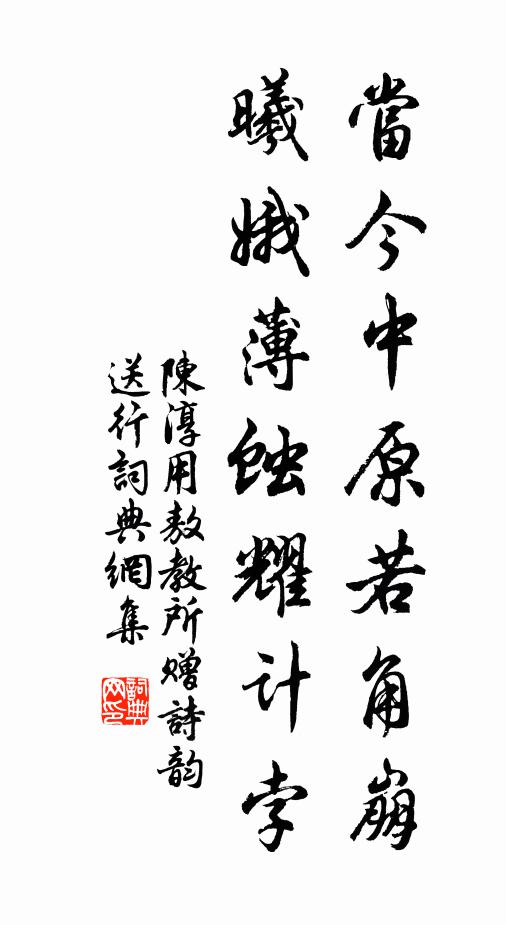 當今中原若角崩
曦娥薄蝕耀計孛
陳淳用敖教所赠詩韵
送行詞典網集
詞典网印